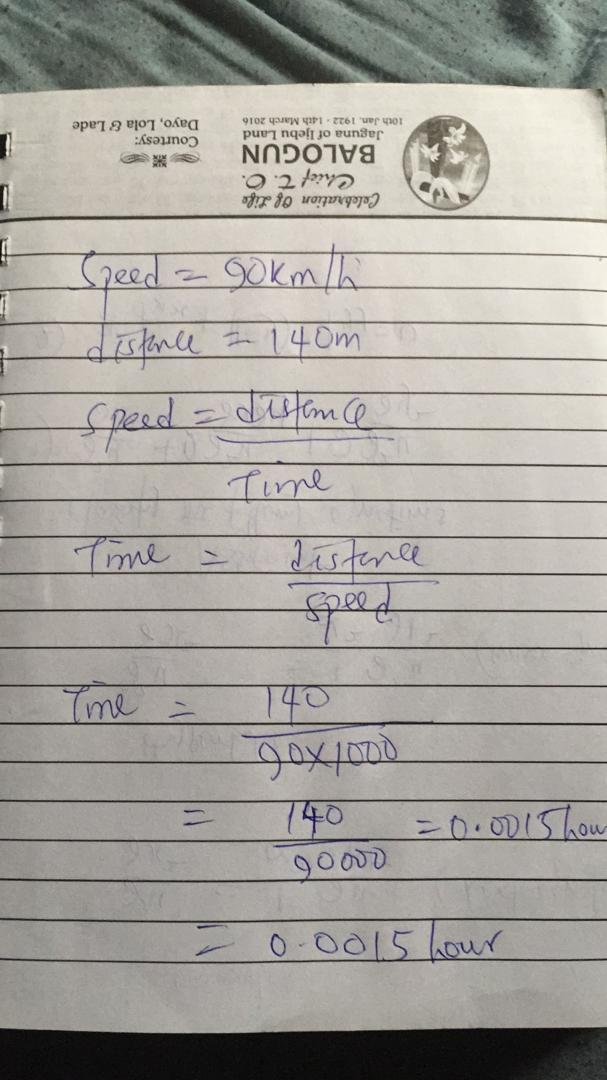 Celebration Of Life
Chief T. O.
BALOGUN
Jaguna of Ijebu Land
10th Jan. 1922 - 14th March 2016
Courtesy:
Dayo, Lola & Lade
Speed = 90km/h
distance = 140m
Speed = distance
Time
Time = distance
speed
Time = 140
90x1000
= 140 = 0.0015 hour
90000
= 0.0015 hour